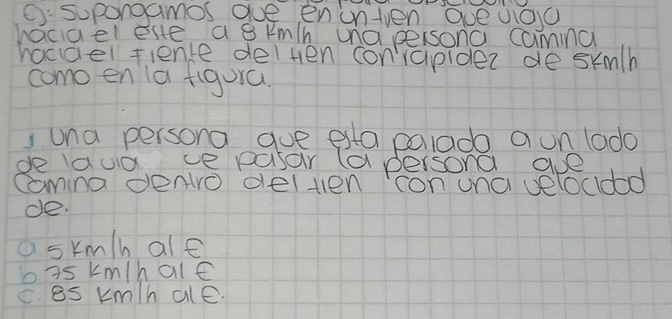 ej: supongamos que en un tren que viaja
hacia el este a 8 km/h una persona camina
hacia el frente del tren con rapidez de 5km/h
como en la figura.
1. una persona que esta parado a un lado
de la via ve pasar la persona que
camina dentro del tren con una velocidad
de.
a 5 km/h al E
b 75 km/h al E
c. 85 km/h al E.